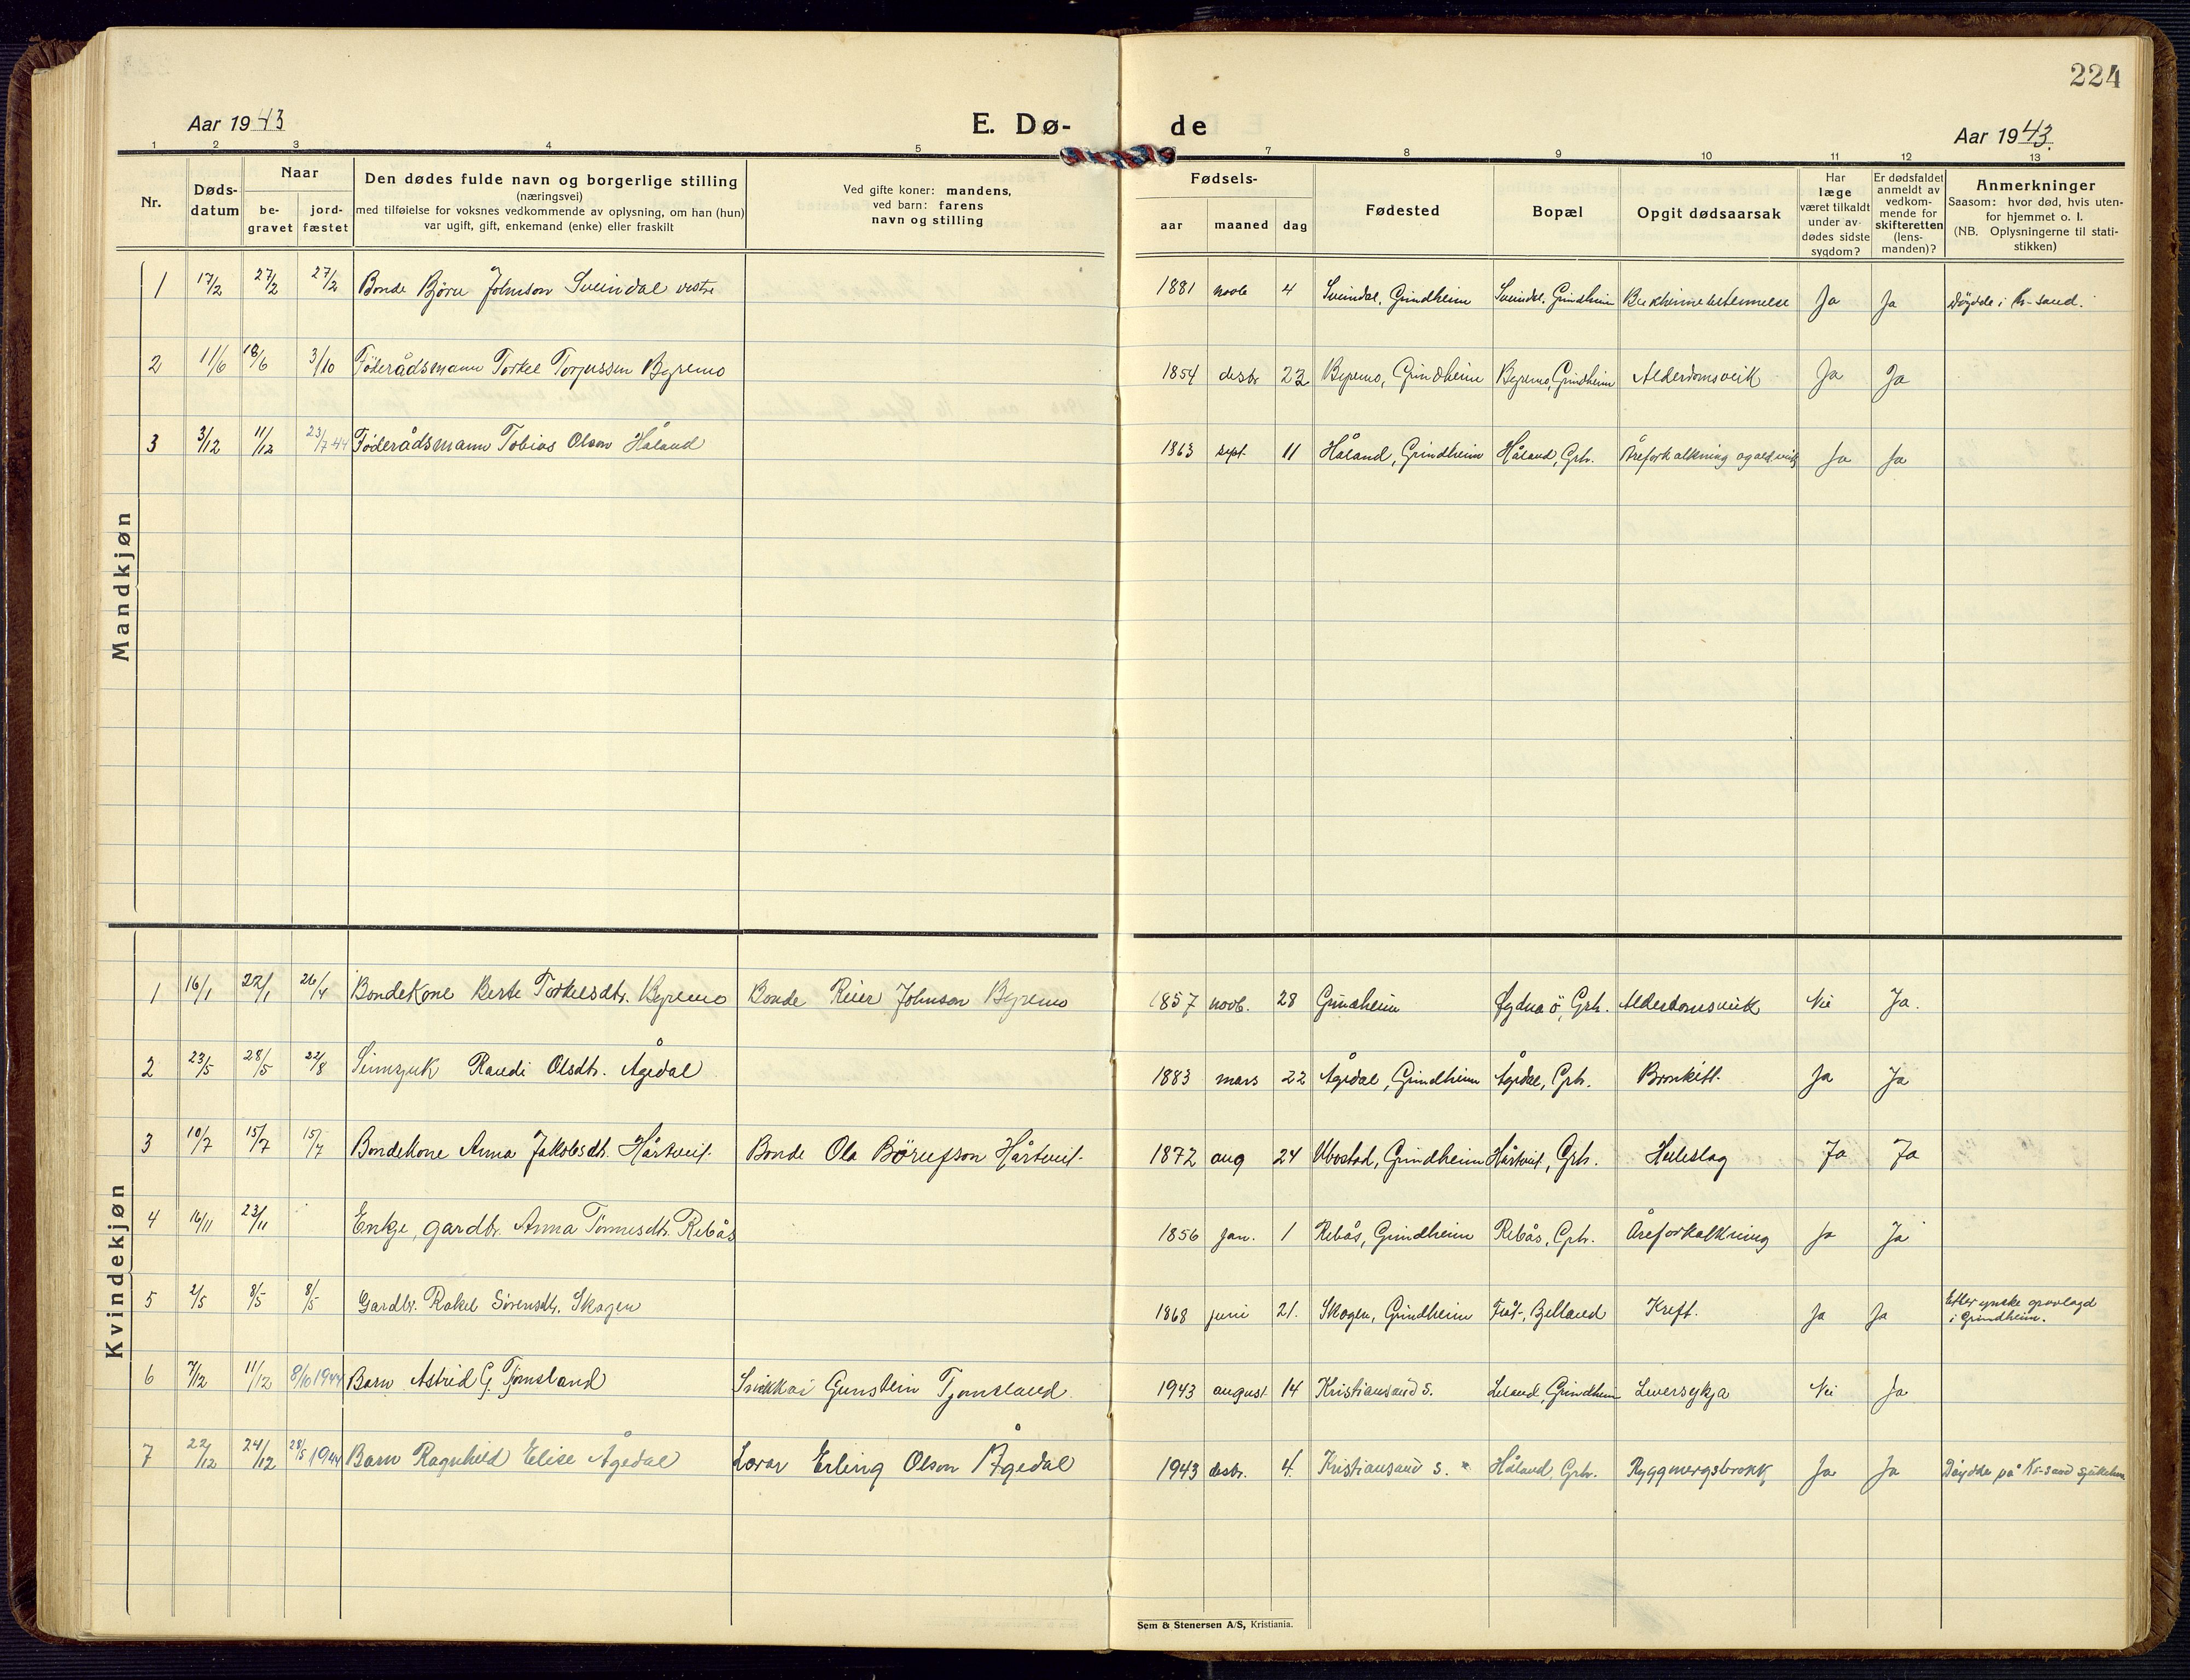 224
Aar 1943
E. Dø-
de
Aar 1943.
1 2 3 4 5 7 8 9 10 11 12 13
Nr.
Døds-
datum
Naar
be-
gravet
jord-
fæstet
Den dødes fulde navn og borgerlige stilling
(næringsvei)
med tilføielse for voksnes vedkommende av oplysning, om han (hun)
var ugift, gift, enkemand (enke) eller fraskilt
Ved gifte koner: mandens,
ved barn: farens
navn og stilling
Fødsels-
aar maaned dag
Fødested
Bopæl
Opgit dødsaarsak
Har
læge
været tilkaldt
under av-
dødes sidste
sygdom?
Er dødsfaldet
anmeldt av
vedkom-
mende for
skifteretten
(lens-
manden)?
Anmerkninger
Saasom: hvor død, hvis uten-
for hjemmet o. l.
(NB. Oplysningerne til stati-
stikken)
Mandkjøn
1 17/2 27/2 27/2 Bonde Bjørn Johnson Sveindal vestre 1881 novb 4 Sveindal, Grindheim Sveindal, Grindheim Bukhinnebetennelse Ja Ja Døydde i Kr-sand.
2 11/6 18/6 3/10 Føderådsmann Torkel Torjussen Byremo 1854 desbr 22 Byremo, Grindheim Byremo, Grindheim Alderdomsveik Ja Ja
3 3/12 11/12 23/7 44 Føderådsmann Tobias Olson Håland 1863 sept. 11 Håland, Grindheim Håland, Grh. Åreforkalkning og ald.veik Ja Ja
Kvindekjøn
1 16/1 22/1 26/4 Bondekone Berte Torkelsdtr. Byremo Bonde Reier Johnson Byremo 1857 novb. 28 Grindheim Øydna ö, Grh. Alderdomsveik Nei Ja.
2 23/5 28/5 22/8 Sinnsjuk Randi Olsdtr. Ågedal 1883 mars 22 Ågedal, Grindheim Ågedal, Grh. Bronkitt. Ja Ja
3 10/7 15/7 15/7 Bondekone Anna Jakobsdtr. Hårtveit. Bonde Ola Børufson Hårtveit. 1872 aug 24 Ubostad, Grindheim Hårtveit, Grh. Heileslag Ja Ja
4 16/11 23/11 Enkje, gardbr. Anna Tønnesdtr. Rebås 1856 jan. 1 Rebås, Grindheim Rebås, Grh. Åreforkalkning Ja Ja
5 2/5 8/5 8/5 Gardbr. Rakel Sørensdtr. Skogen 1868 juni 21. Skogen, Grindheim Bjelland Kreft. Ja Ja Etter ynske gravlagd
i Grindheim.
6 7/12 11/12 8/10 1944 Barn Astrid G. Tjomsland Snikkar Gunstein Tjomsland 1943 august 14 Kristiansand S. Leland, Grindheim Leversykja Nei Ja
7 22/12 24/12 28/5 1944 Barn Ragnhild Elise Ågedal Lærar Erling Olson Ågedal 1943 desbr. 4. Kristiansand S. Håland, Grh. Ryggmergsbrokk Ja Ja Døydde på Kr-sand sjukehus
Sem & Stenersen A/S, Kristiania.